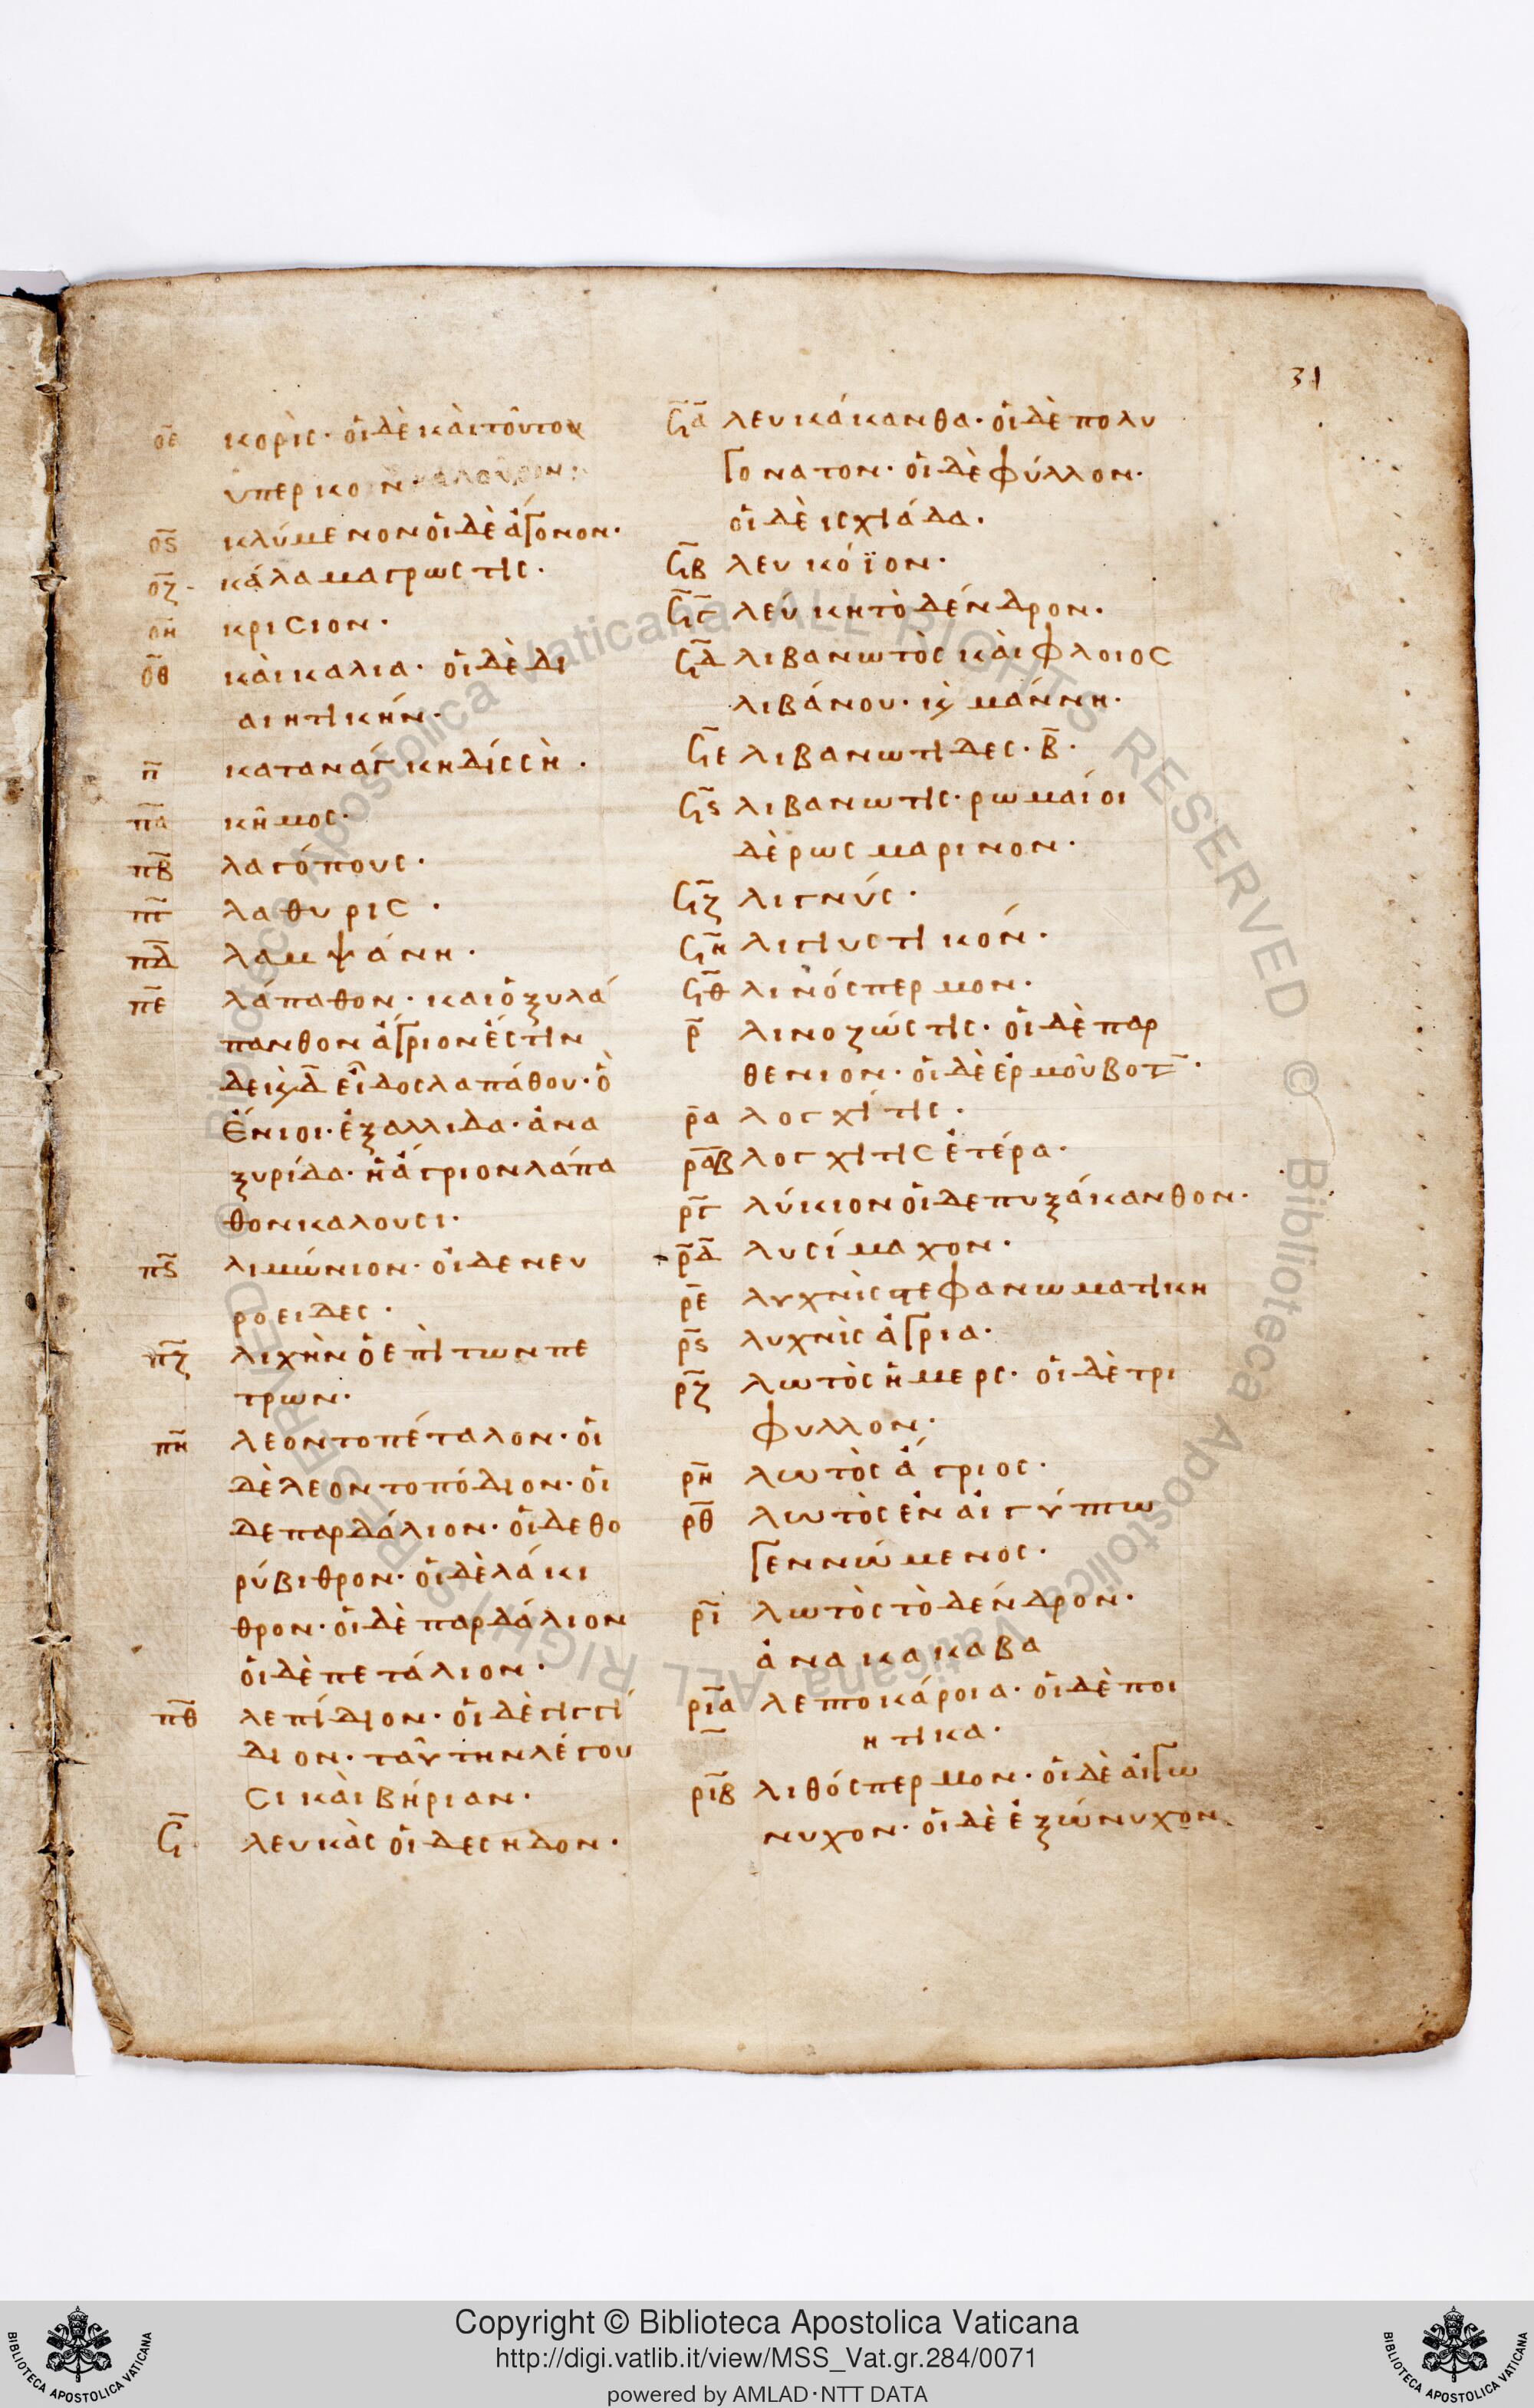 31
ο̅ε̅ κορὶς· οἱ δὲ καὶ τοῦτον
ὑπερικὸν καλοῦσιν·
ο̅ϛ̅ κλύμενον οἱ δὲ ἄγονον·
ο̅ζ̅ κάλαμαγρωστις·
ο̅η̅ κρισιον·
ο̅θ̅ καὶκαλια· οἱ δὲ δι
αιητικήν·
π̅ κατανάγκη δίσσὴ·
π̅α̅ κῆμος·
π̅β̅ λαγόπους·
π̅γ̅ λαθυρις·
π̅δ̅ λαμψάνη·
π̅ε̅ λάπαθον· και ὀξυλά
πανθον ἄγριον ἐστὶν
δε ιϗδ̅ εἶδος λαπάθου· ὃ
ἔνιοι· ἐξαλλιδα· ἀνα
ξυρίδα· ἢ ἄγριον λάπα
θον καλουσι·
π̅ϛ̅ λιμώνιον· οἱ δε νευ
ροειδες·
π̅ζ̅ λιχὴν ὁ επὶ των πε
τρων·
π̅η̅ λεοντοπέταλον· οἱ
δὲ λεοντοπόδιον· οἱ
δε παρδάλιον· οἱ δε θο
ρύβιθρον· οἱ δὲ λάκι
θρον· οἱ δὲ παρδάλιον
οἱ δὲ πετάλιον·
π̅θ̅ λεπίδιον· οἱ δὲ γιγγί
διον· ταύτην λέγου
σι καὶ βήριαν·
ϟ̅ λευκὰς οἱ δε σηδον·
ϟ̅α̅ λευκάκανθα· οἱ δὲ πολυ
γονατον· οἱ δὲ φύλλον·
οἱ δὲ ισχιάδα·
ϟ̅β̅ λευκόϊον·
ϟ̅γ̅ λεύκη τὸ δένδρον·
ϟ̅δ̅ λιβανωτὸς καὶ φλοιος
λιβάνου· ϗ μάννη·
ϟ̅ε̅ λιβανωτίδες· β̅·
ϟ̅ϛ̅ λιβανωτὶς· ρωμαίοι
δὲ ρωσμαρινον·
ϟ̅ζ̅ λιγνύς·
ϟ̅η̅ λιγιυστικόν·
ϟ̅θ̅ λινόσπερμον·
ρ̅ λινοζώστις· οἱ δὲ παρ
θενιον· οἱ δὲ ἑρμοῦ βοτ·
ρ̅α̅ λογχίτις·
ρ̅α̅β̅ λογχιτις ἑτέρα·
ρ̅γ̅ λύκιον οἱ δε πυξάκανθον·
ρ̅δ̅ λυσίμαχον·
ρ̅ε̅ λυχνὶς στεφανωματικη
ρ̅ϛ̅ λυχνὶς ἀγρια·
ρ̅ζ̅ λωτὸς ἥμερς· οἱ δὲ τρι
φυλλον·
ρ̅η̅ λωτὸς ἄγριος·
ρ̅θ̅ λωτὸς ἐν αἰγύπτω
γεννώμενος·
ρ̅ι̅ λωτὸς τὸ δένδρον·
ἀνακακαβα
ρ̅ι̅α̅ λεπτοκάροια· οἱ δὲ ποι
ητικα·
ρ̅ι̅β̅ λιθόσπερμον· οἱ δὲ αἰγω
νυχον· οἱ δὲ ἐξώνυχον
Copyright © Biblioteca Apostolica Vaticana
http://digi.vatlib.it/view/MSS_Vat.gr.284/0071
powered by AMLAD·NTT DATA
BIBLIOTECA APOSTOLICA VATICANA
BIBLIOTECA APOSTOLICA VATICANA
© Biblioteca Apostolica Vaticana ALL RIGHTS RESERVED © Biblioteca Apostolica Vaticana ALL RIGHTS RESERVED